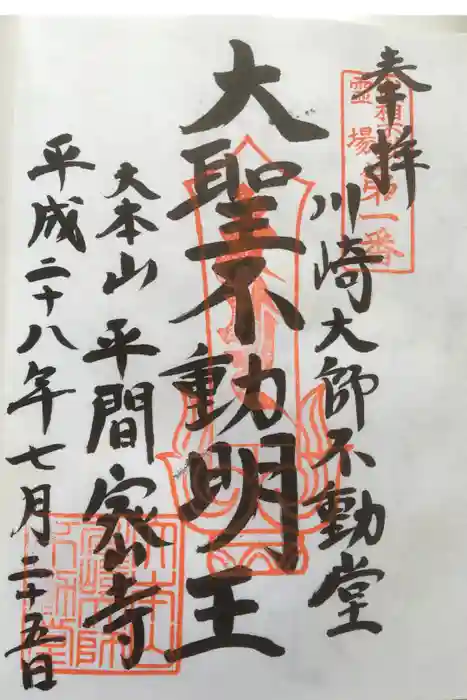 奉拝
霊場第一番
川崎大師不動堂
大聖不動明王
大本山平間寺
平成二十八年七月二十五日